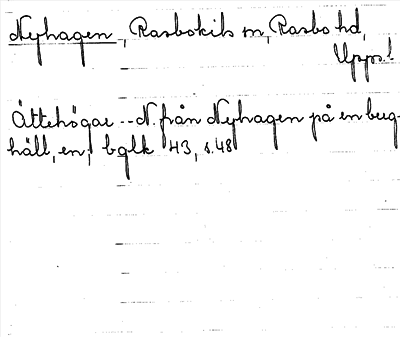 Nyhagen, Rasbokils sn, Rasbo hd,
Upps. l
Ättehögar -- N. från Nyhagen på en berg-
häll, en, bglk 43, s. 48